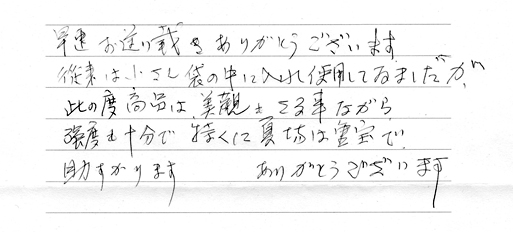 早速お送り戴きありがとうございます
従来は小さい袋の中に入れ使用してゐましたが、
此の度商品は、美観もさる事ながら
強度も十分で 特に夏場は重宝で
助すかります ありがとうございます